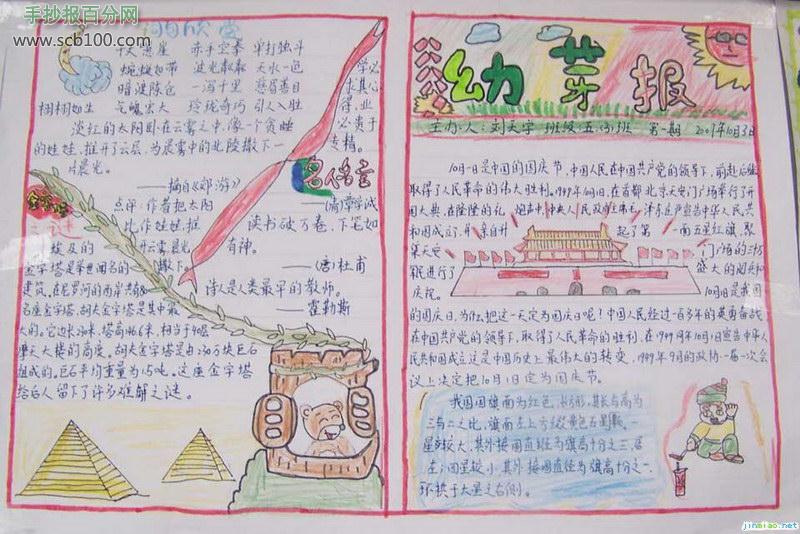 手抄报百分网
www.scb100.com
词语欣赏
赤手空拳 单打独斗
蜿蜒如带 波光粼粼 天水一色
暗渡陈仓 一泻千里 慈眉善目
栩栩如生 气魄宏大 玲珑奇巧 引人入胜
淡红的太阳卧在云雾之中,像一个贪睡
的娃娃,推开了云层,为晨雾中的北陵撒下一
片晨光。
——摘自《郊游》
点评:作者把太阳
比作娃娃,推
开云雾晨光
撒下
学必
求其心
得,业
必贵于
专精。
名人名言
——(清)章学诚
读书破万卷,下笔如
有神。
——(唐)杜甫
诗人是人类最早的教师。
——霍勒斯
金字塔
之谜
埃及的
金字塔是举世闻名的
建筑,在尼罗河的两岸共有
名座金字塔,胡夫金字塔是其中最
大的。它边长230米,塔高146米,相当于40层
摩天大楼的高度。胡夫金字塔是由230万块巨石
组成的,巨石平均重量为2.5吨。这座金字塔
给后人留下了许多难解之谜。
幼芽报
主办人:刘天宇 班级五(3)班 第一期 2009年10月3日
10月1日是中国的国庆节,中国人民在中国共产党的领导下,前赴后继
取得了人民革命的伟大胜利。1949年10月1日,在首都北京天安门广场举行了开
国大典,在隆隆的礼炮声中,中央人民政府主席毛泽东庄严宣告中华人民共
和国成立了,并亲自升起了第一面五星红旗,聚
集天安门广场的三十万
军民进行了盛大的阅兵和
庆祝。10月1日是我国
的国庆日,为什么把这一天定为国庆日呢?中国人民经过一百多年的英勇奋战
在中国共产党的领导下,取得了人民革命的胜利,在1949年10月1日宣告中华人
民共和国成立,这是中国历史上最伟大的转变,1949年9月的政协一届一次会
议上决定把10月1日定为国庆节。
我国国旗面为红色,长方形,其长与高为
三与二之比,旗面左上方缀黄色五星五颗。一
星较大,其外接圆直径为旗高十分之三,居
左;四星较小,其外接圆直径为旗高十分之一,
环拱于大星之右侧。
jinmiao.net